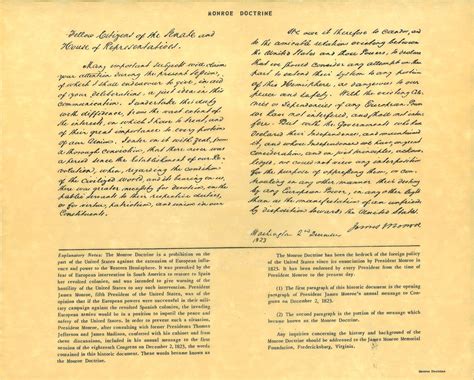 MONROE DOCTRINE
Fellow Citizens of the Senate and
House of Representatives.
Many important subjects will claim
your attention during the present Session,
of which I shall endeavour to give, in aid
of your deliberations, a just idea in this
communication. I undertake this duty
with diffidence, from the vast extent of
the interests, on which I have to treat, and
of their great importance to every portion
of our Union. I enter on it with zeal, from
a thorough conviction, that there never was
a period since the establishment of our Re-
volution, when, regarding the condition
of the Civilized World, and its bearing on us,
there was greater necessity for devotion, in the
public servants to their respective duties,
or for virtue, patriotism, and union in our
Constituents.
We owe it therefore to candor, and
to the amicable relation existing between
the United States and those Powers, to declare
that we should consider any attempt on their
part to extend their system to any portion
of this Hemisphere, as dangerous to our
peace and safety. With the existing Colo-
nies or Dependencies of any European Power
we have not interfered, and shall not inter-
fere. But with the Governments who have
declared their Independence, and maintained
it, and whose Independence we have, on great
consideration, and on just principles, acknow-
ledged, we could not view any interposition
for the purpose of oppressing them, or con-
trouling in any other manner their destiny
by any European Power, in any other light
than as the manifestation of an unfriendly
disposition towards the United States.
James Monroe
Washington 2nd December
1823
Explanatory Notes: The Monroe Doctrine is a prohibition on the
part of the United States against the extension of European influ-
ence and power to the Western Hemisphere. It was provoked by the
fear of European intervention in South America to restore to Spain
her revolted colonies, and was intended to give warning of the
hostility of the United States to any such intervention. President
James Monroe, fifth President of the United States, was of the
opinion that if the European powers were successful in their mili-
tary campaign against the revolted Spanish colonies, the invading
European armies would be a position to imperil the peace and
safety of the United States. In order to prevent such a situation,
President Monroe, after consulting with former Presidents Thomas
Jefferson and James Madison, conferred with his cabinet and from
these discussions, included in his annual message to the first session
of the eighteenth Congress on December 2, 1823, the words
contained in this historic document. These words became known as
the Monroe Doctrine.
The Monroe Doctrine has been the bedrock of the foreign policy
of the United States since its enunciation by President Monroe in
1823. It has been endorsed by every President from the time of
President Monroe to the present day.
(1) The first paragraph of this historic document is the opening
paragraph of President James Monroe's annual message to Con-
gress on December 2, 1823.
(2) The second paragraph is the portion of the message which
became known as the Monroe Doctrine.
Any inquiries concerning the history and background of the
Monroe Doctrine should be addressed to the James Monroe Memorial
Foundation, Fredericksburg, Virginia.
Monroe Doctrine